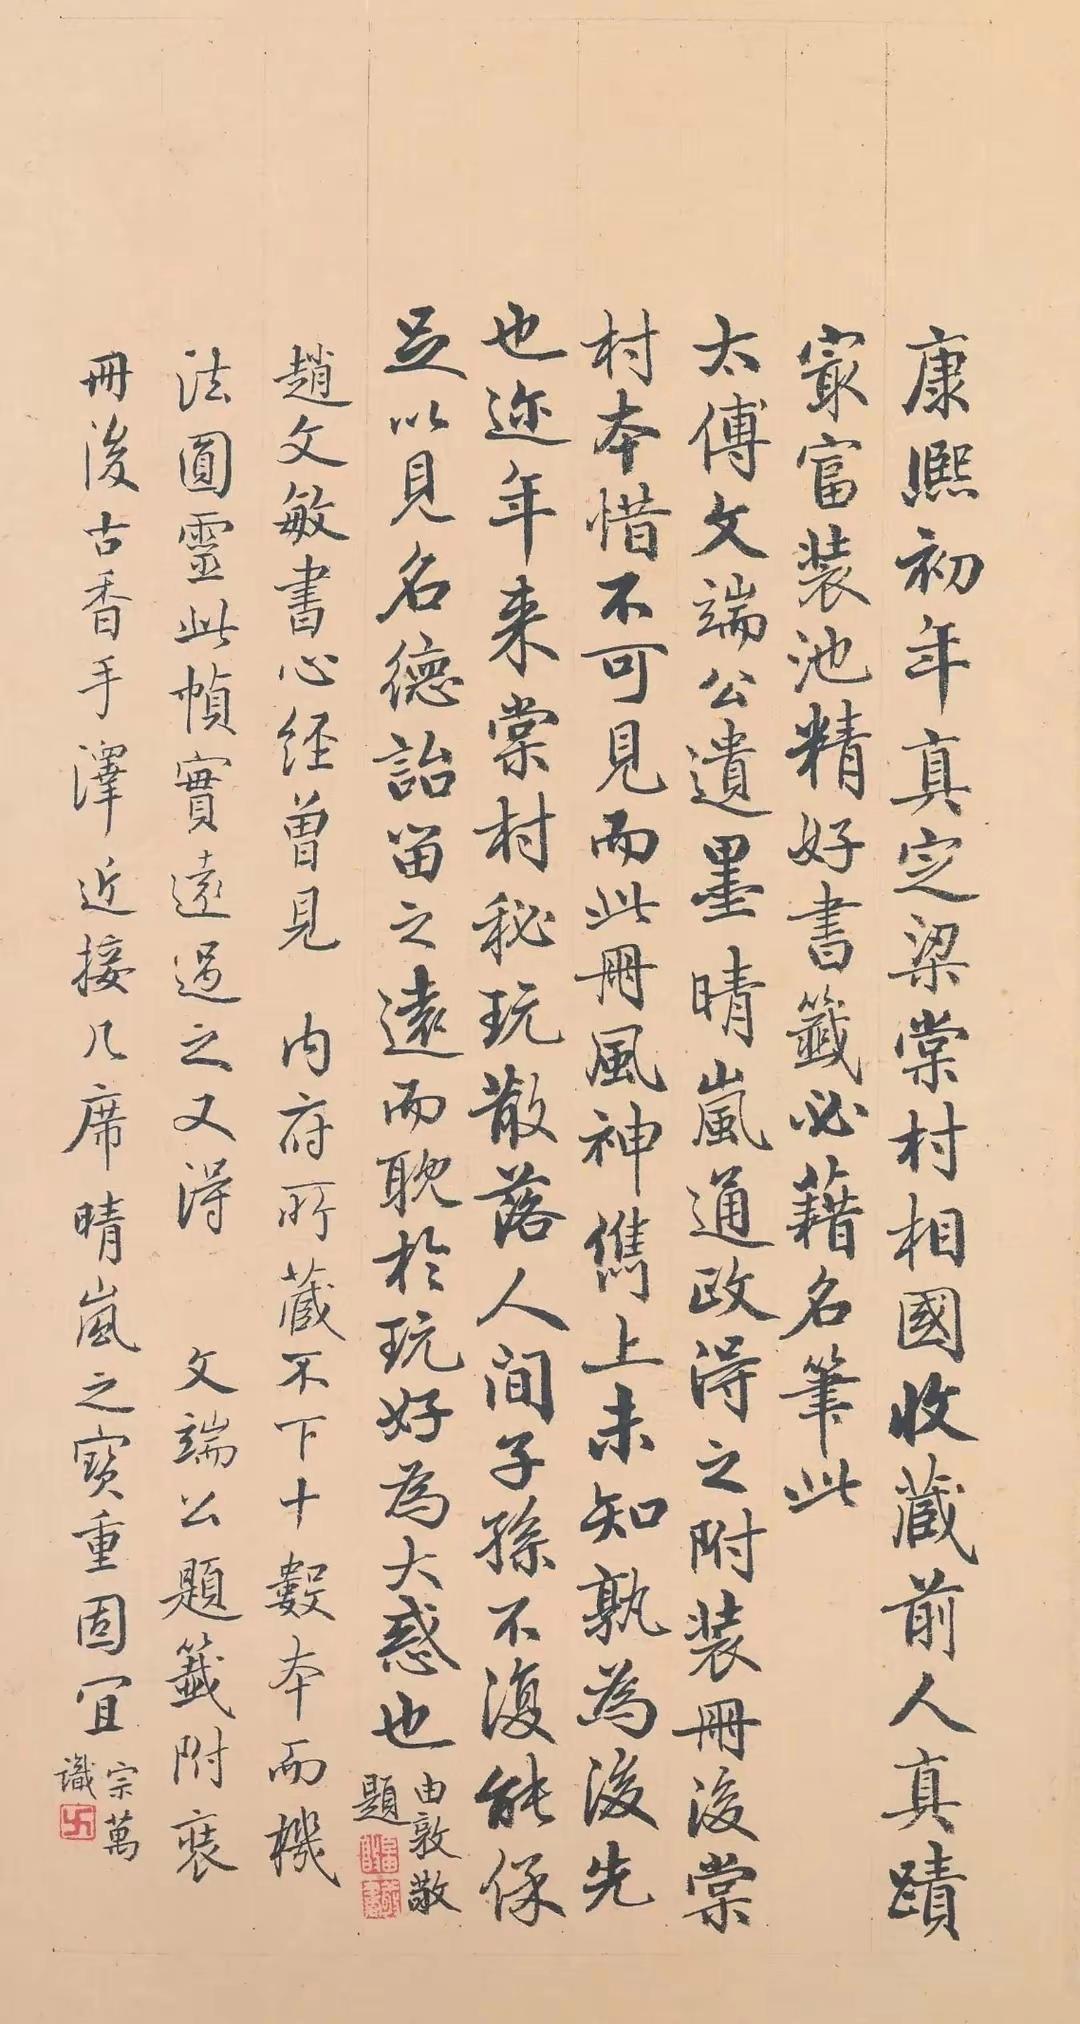 康熙初年真定梁棠村相國收藏前人真蹟
冣富裝池精好書籤必藉名筆此
太傅文端公遺墨晴嵐通政得之附裝冊後棠
村本惜不可見而此冊風神儁上未知孰為後先
也迩年来棠村秘玩散落人间子孫不復能保
足以見名德詒留之遠而耽於玩好為大惑也
由敦敬
題
趙文敏書心經曾見 内府所藏不下十數本而機
法圓靈此幀實遠過之又得 文端公題籤附裝
冊後古香手澤近接几席晴嵐之寶重固宜
宗萬
識
卍